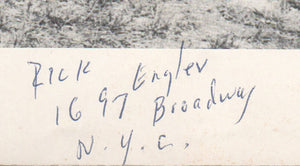 Rick Engler
1697 Broadway
N.Y.C.